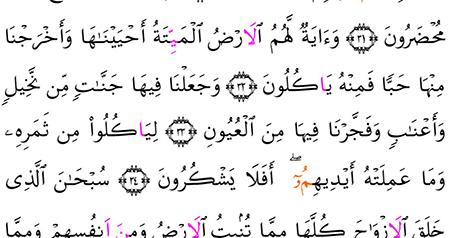 مُحْضَرُونَ ﴿٣١﴾ وَءَايَةٌ لَّهُمُ الَارْضُ الْمَيِّتَةُ أَحْيَيْنَٰهَا وَأَخْرَجْنَا
مِنْهَا حَبّٗا فَمِنْهُ يَاكُلُونَ ﴿٣٢﴾ وَجَعَلْنَا فِيهَا جَنَّٰتٖ مِّن نَّخِيلٖ
وَأَعْنَٰبٖ وَفَجَّرْنَا فِيهَا مِنَ الْعُيُونِ ﴿٣٣﴾ لِيَاكُلُواْ مِن ثَمَرِهِۦ
وَمَا عَمِلَتْهُ أَيْدِيهِمُۥٓۖ أَفَلَا يَشْكُرُونَ ﴿٣٤﴾ سُبْحَٰنَ الَّذِى
خَلَقَ الَازْوَٰجَ كُلَّهَا مِمَّا تُنۢبِتُ الَارْضُ وَمِنَ اَنفُسِهِمْ وَمِمَّا